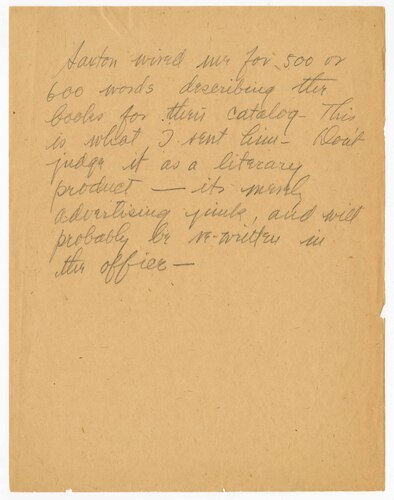 Saxton wired me for 500 or
600 words describing the
books for their catalog- This
is what I sent him- Don't
judge it as a literary
product — its merely
advertising junk, and will
probably be re-written in
the office —